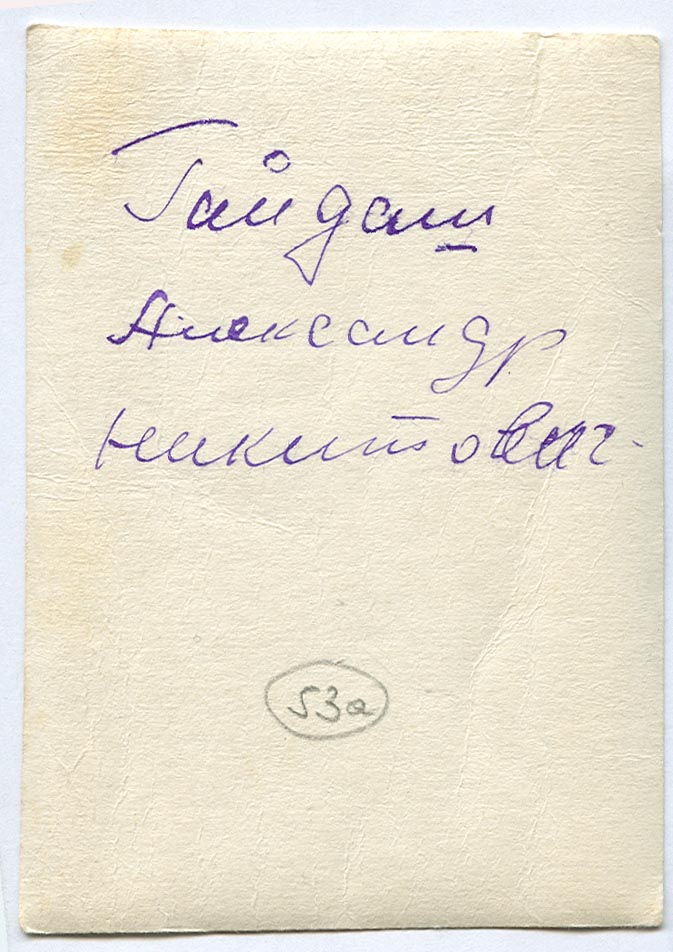 Гайдаш
Александр
Никитович
53а